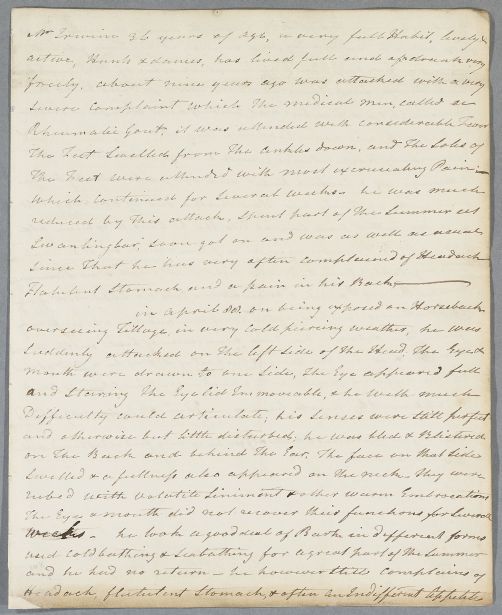 Mr Irwin 36 years of age, a very full Habit, lively &
active, Hunts & dances, has lived full and up drank very
freely, about nine years ago was attacked with a very
severe Complaint which the medical men called a
Rheumatic Gout, it was attended with considerable Fever
The Feet Swelled from the ankles down, and the Soles of
the Feet were attended with most excruciating Pain –
which continued for several weeks – he was much
reduced by this attack, spent part of the Summer at
Swanlingbar, soon got on and was as well as usual,
since that he has very often complained of Headach
Flatulent Stomach and a pain in his Back –
in april on being exposed on Horseback
overseeing Tillage, in very cold piercing weather, he was
suddenly attacked on the left side of the Head. The Eye &
mouth were drawn to one side, the Eye appeared full
and Staring the Eyelid Immoveable, & he with much
Difficulty could articulate, his senses were still perfect
and otherwise but little disturbed, he was bled & Blistered
on the Back and behind the Ear. The face on that side
Swelled & a fullness also appeared on the neck they were
rubed with volatile Liniment & other warm Embrocations
The Eye & mouth did not recover their functions for several
weeks – he took a good deal of Bark in different forms
used cold bathing & Seabathing for a great part of the Summer
and he had no return – he however still complains of
Headach, flatulent Stomach, & often an Indifferent Appetite